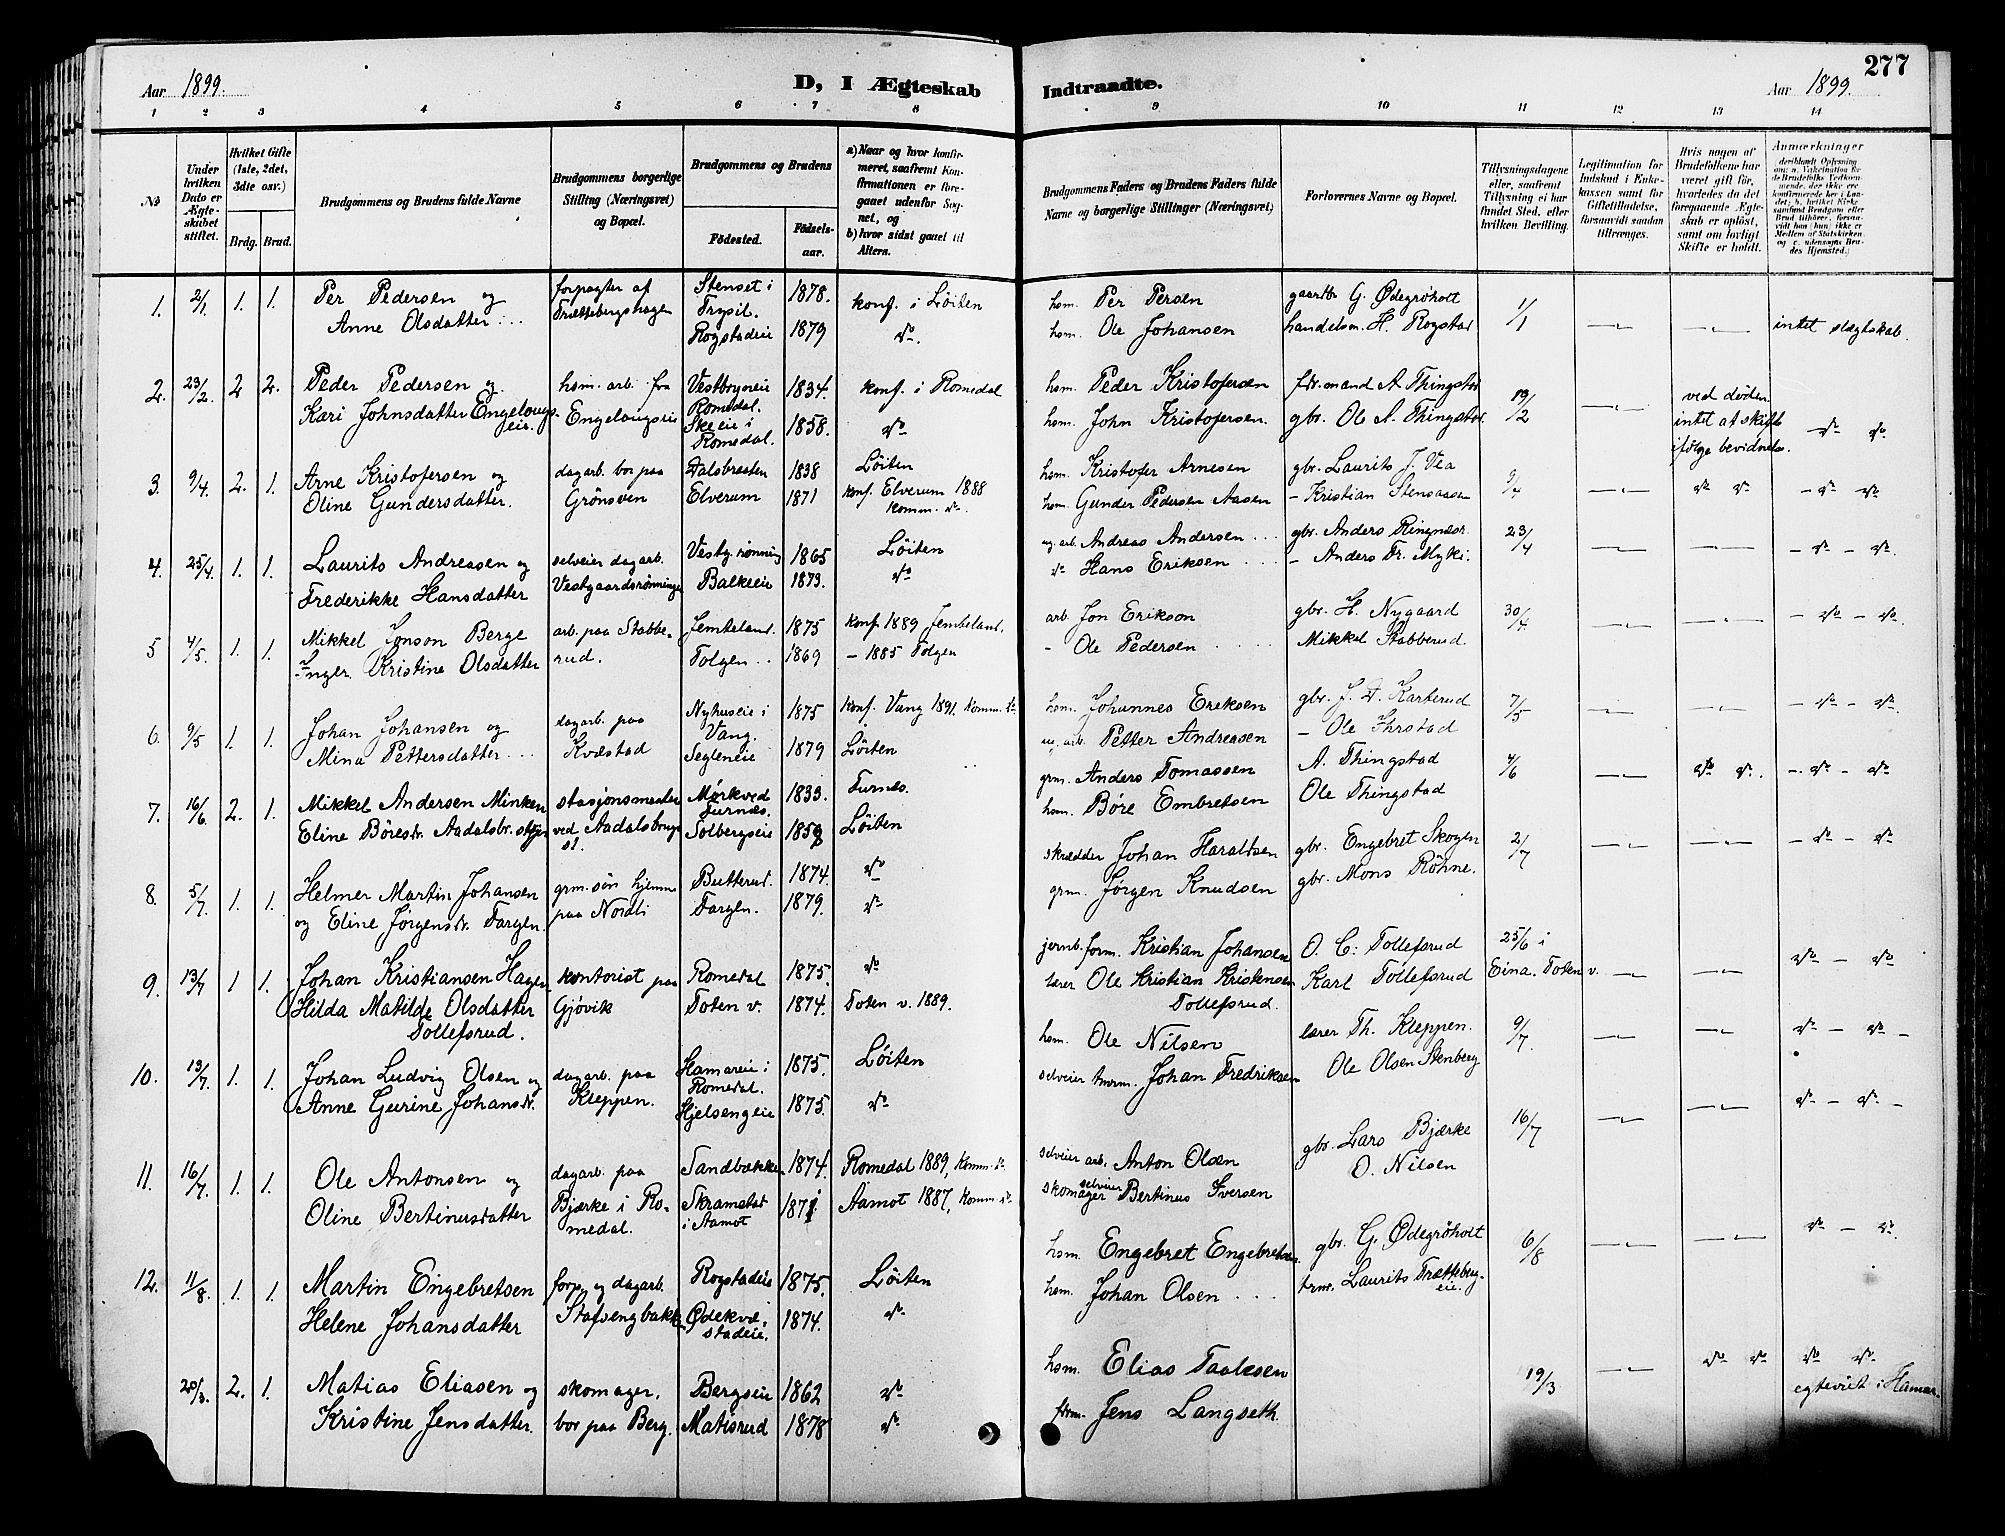 277
Aar 1899.
D, I Ægteskab
Indtraadte.
Aar 1899.
1 2 3 4 5 6 7 8 9 10 11 12 13 14
No
Under hvilken Dato er Ægteskabet stiftet.
Hvilket Gifte (1ste, 2det, 3die osv.)
Brdg. Brud.
Brudgommens og Brudens fulde Navne
Brudgommens borgerlige Stilling (Næringsvei) og Bopæl.
Brudgommens og Brudens
Fødested.
Fødselsaar.
a) Naar og hvor konfirmeret, saafremt Konfirmationen er foregaaet udenfor Sognet, og
b) hvor sidst gaaet til Alters.
Brudgommens Faders og Brudens Faders fulde Navne og borgerlige Stillinger (Næringsvei)
Forlovernes Navne og Bopæl.
Tillysningsdagene eller, saafremt Tillysning ei har fundet Sted, efter hvilken Bevilling.
Legitimation for Indskud i Enkekassen samt for Giftetilladelse, forsaavidt saadan tiltrænges.
Hvis nogen af Brudefolkene har været gift før, hvorledes da det foregaaende Ægteskab er opløst, samt om lovligt Skifte er holdt.
Anmærkninger
1. 2/1 1. 1. Per Pedersen og forpagter af Stenset i 1878. konf. i Löiten hsm. Per Persen gaardbr. G. Ødegröholt 1/1 intet slegtskab.
Anne Olsdatter... Trættebergshagen Trysil. Rogstadeie 1879 do. hsm. Ole Johansen handelsm. H. Rogstad
2. 23/2 2 2. Peder Pedersen og hsm. arb. fra Vestbryneie 1834. konf. i Romedal hsm. Peder Kristofersen fdr. mand A. Thingstad 19/2 ved døden.
Kari Johnsdatter Engelaugseie. Engelaugseie Romedal. Skeeie i Romedal. 1858. do hsm. John Kristofersen. gbr. Ole A. Thingstad. intet at skifte ifölge bevidnelse. do do.
3. 9/4. 2. 1. Arne Kristofersen og dagarb. bor paa Dalsbraaten 1838 Löiten hsm. Kristofer Arnesen gbr. Laurits J. Vea 9/4 do do. - do do
Oline Gundersdatter. Grönsven Elverum 1871 konf. Elverum 1888 komm. do. hsm. Gunder Pedersen Aasen - Kristian Stensaasen
4. 25/4. 1. 1. Laurits Andreasen og selveier dagarb. Vestg. rønning 1865 Löiten Andreas Andersen... gbr. Anders Ringnæs. 23/4 - do - do.
Frederikke Hansdatter Vestgaardsrønningen Balkeeie 1873. do do Hans Eriksen... - Anders Fr. Myki.
5 4/5. 1. 1. Mikkel Jonson Berge arb. paa Stabberud. Jemteland. 1875 konf. 1889 Jemteland. arb. Jon Erikson gbr. H. Nygaard 30/4 - do - do.
Inger Kristine Olsdatter Tolgen.. 1869 - 1885 Tolgen - Ole Pedersen.... Mikkel Stabberud
6. 9/5 1. 1. Johan Johansen og dagarb. paa Nyhuseie i Vang. 1875 konf. Vang 1891. komm. do hsm. Johannes Eriksen gbr. J. D. Karterud 7/5 - do - do.
Mina Pettersdatter... Kvæstad Segleneie 1879 Löiten Petter Andreasen - Ole Ihrstad
7. 16/6. 2. 1. Mikkel Andersen Minken stasjonsmester Mørkved Furnæs. 1833. Furnes. grm. Anders Tomassen A. Thingstad 4/6 do do. - do - do
Eline Böresdr. Aadalsbr. st. ved Aadalsbrugs st. Solbergseie Löiten hsm. Böre Embretsen Ole Thingstad
8. 5/7. 1. 1. Helmer Martin Johansen grm. søn hjemme Butterud. 1874. do skrædder Johan Haraldsen gbr. Engebret Skogen 2/7 - do - do
og Eline Jørgensdr. Fargen. paa Nordli Fargen. 1879. do grm. Jørgen Knudsen gbr. Mons Röhne.
9. 13/7 1 1. Johan Kristiansen Hagen kontorist paa Romedal 1875. do jernb. form. Kristian Johansen O. C. Tollefsrud 25/6 i Eina. Toten v. do - do
Hilda Matilde Olsdatter Tollefsrud. Gjøvik Toten v. 1874. Toten v. 1889. lærer Ole Kristian Kristensen Tollefsrud. Karl Tollefsrud
10. 13/7. 1. 1. Johan Ludvig Olsen og dagarb. paa Hamareie i Romedal. 1875. Löiten hsm. Ole Nilsen lærer Th. Kleppen. 9/7. do - do -
Anne Gurine Johansdr. Kleppen. Hjelsengeie 1875. do selveier tmrm. Johan Fredriksen Ole Olsen Stenberg
11. 16/7. 1. 1. Ole Antonsen og dagarb. paa Sandbakken 1874. Romedal 1889, komm. do. selveier arb. Anton Olsen gbr. Lars Bjærke 16/7 do - do -
Oline Bertinusdatter Bjærke i Romedal. Skramstad i Aamot 1871 Aamot 1887, komm. do. selveier skomager Bertinus Iversen O. Nilsen
12. 11/8. 1. 1. Martin Engebretsen forp. og dagarb. Rogstadeie 1875. Löiten hsm. Engebret Engebretsen gbr. G. Ødegröholt 6/8 do - do.
Helene Johansdatter Stafsengbakken Ødekvæstadeie. 1874. do hsm. Johan Olsen... tmrm. Laurits Trættebergeie.
20/3. 2. 1. Matias Eliasen og skomager. Bergseie 1862 do hsm. Elias Taalesen 19/3 do do do do
Kristine Jensdatter. bor paa Berg. Matisrud 1878 do. fdrm. Jens Langseth. egteviet i Hamar.